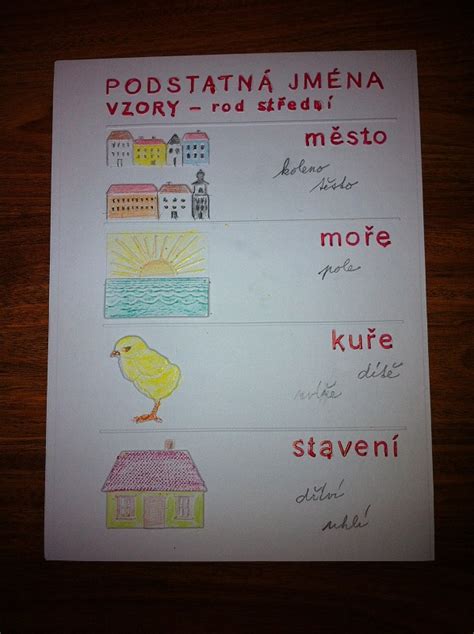 PODSTATNÁ JMÉNA
VZORY – rod střední
město
koleno
těsto
moře
pole
kuře
dítě
zvíře
stavení
dříví
uhlí